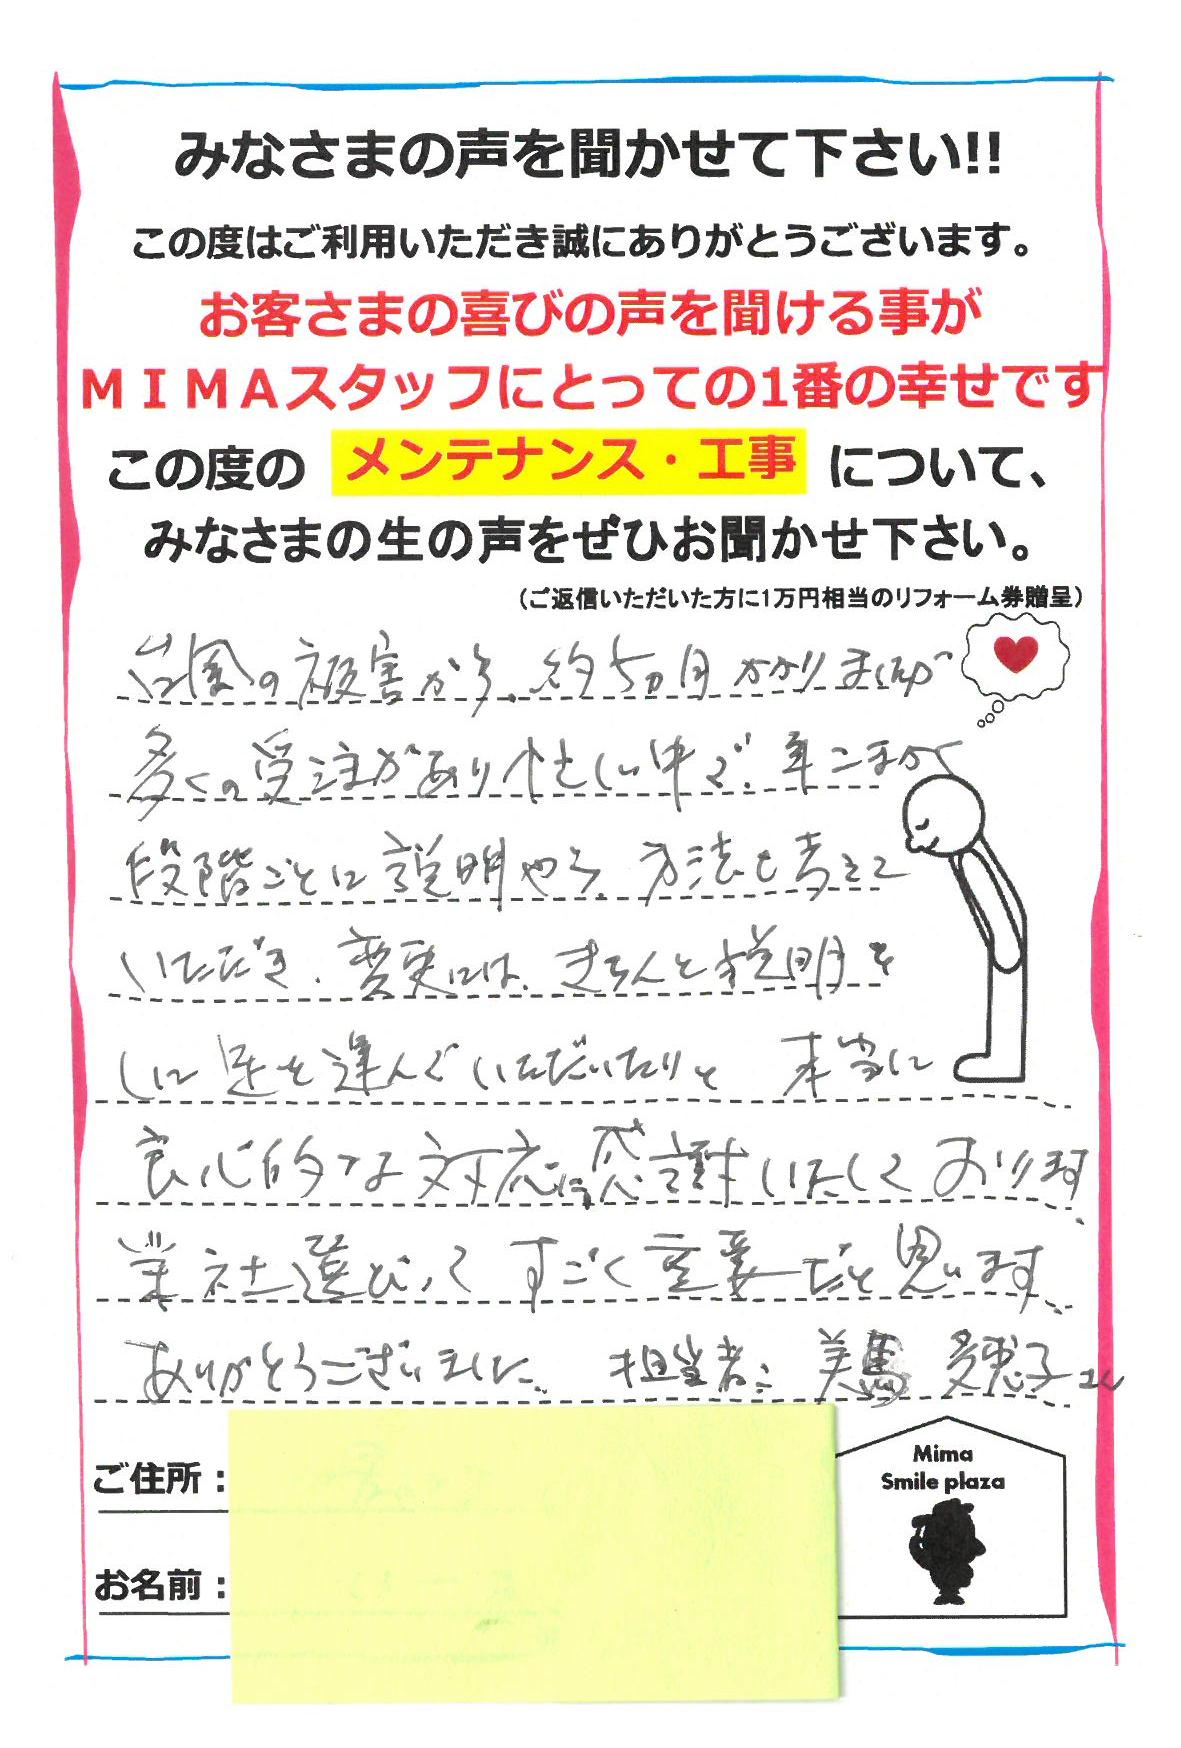 みなさまの声を聞かせて下さい!!
この度はご利用いただき誠にありがとうございます。
お客さまの喜びの声を聞ける事が
ＭＩＭＡスタッフにとっての1番の幸せです
この度の メンテナンス・工事 について、
みなさまの生の声をぜひお聞かせ下さい。
（ご返信いただいた方に1万円相当のリフォーム券贈呈）
台風の被害から、約5カ月かかりましたが
多くの受注があり忙しい中で、事こまかく
段階ごとに説明やら、方法も考えて
いただき、変更には、きちんと説明を
しに足を運んでいただいたりと 本当に
良心的な対応に感謝いたしております。
業社選びって すごく重要だと思います。
ありがとうございました。 担当者: 美馬 多恵子さん
ご住所：
お名前：
Mima
Smile plaza